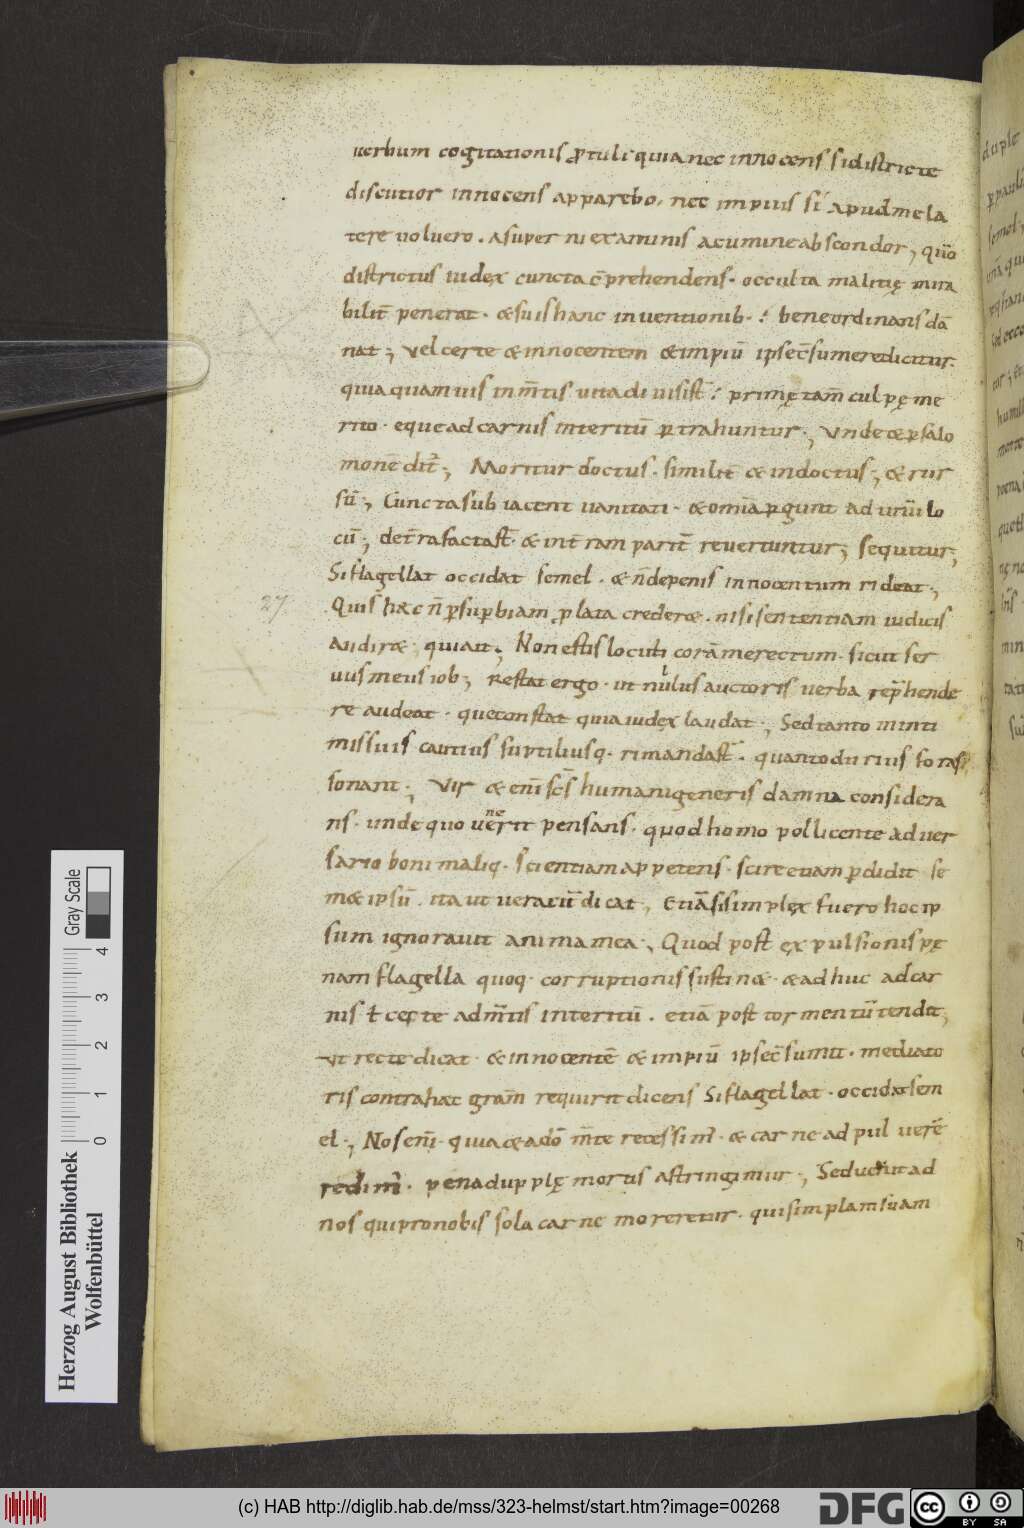 uerbum cogitationis ꝓtuli quia nec innocens si districte
discutior innocens apparebo, nec impius si apud me la
tere uoluero. a superni examinis acumine abscondor, quō
districtus iudęx cuncta cp̄rehendens. occulta malitię mira
bilit̄ penetrat. & suis hanc inuentionib. bene ordinans dā
nat; Vel certe & innocentem & impiū ipse c̄sumere dicitur.
quia quamuis in m̄tis uita diuisi st̄. primę tam̄ culpę me
rito. eque ad carnis interitū ꝑtrahuntur; Vnde & ꝑ salo
monē dit̄; Moritur doctus. similit̄ & indoctus; & rur
sū; Cuncta subiacent uanitati. & omīa ꝑgunt ad unū lo
cū; de t̄ra facta st̄. & in t̄ram parit̄ reuertuntur; sequitur;
Si flagellat occidat semel. & n̄ de penis innocentum rideat;
27.
Quis hæc n̄ ꝑ supbiam ꝓlata crederæ. nisi sententiam iudicis
audiræ quiait; Non estis locuti corā me rectum. sicut ser
uus meus iob; Restat ergo. ut nullus auctoris uerba rep̄hende
re audeat. que constat quia iudęx laudat; Sed tanto in inti
mis suis cautius suptiliusq. rimanda st̄. quanto durius foras
sonant; Vir & enī sc̄s humani generis damna considera
ns. unde quo uenerit pensans. quod homo pollicente aduer
sario boni maliq. scientiam appetens. scire etiam ꝑdidit se
m& ipsū. ita ut ueraciť dicat, Etiā si simplęx fuero hoc ip
sum ignorauit anima mea, Quod post ęxpulsionis pę
nam flagella quoq. corruptionis sustin&. & adhuc ad car
nis ł certe ad m̄tis interitū. etiā post tormentū tendit,
Vt recte dicat & innocentē & impiū ipse c̄sumit. mediato
ris contrahat gram̄ requirit dicens Si flagellat. occidat sem
el; Nos enī. quia & a dō m̄te recessim̄. & carne ad puluerē
redim̄. pena dupplę mortis astringimur; Sed uenit ad
nos qui pro nobis sola carne moreretur. qui simplam suam
duple
Gray Scale
4
3
2
1
0
Herzog August Bibliothek
Wolfenbüttel
(c) HAB http://diglib.hab.de/mss/323-helmst/start.htm?image=00268
DFG
cc BY SA